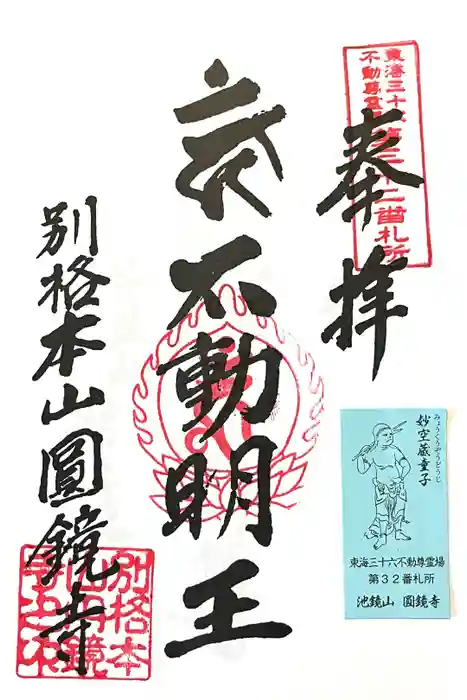 東海三十六
不動尊霊場
三十二番札所
奉拝
不動明王
別格本山圓鏡寺
みょうくうぞうどうじ
妙空蔵童子
東海三十六不動尊霊場
第32番札所
池鏡山 圓鏡寺